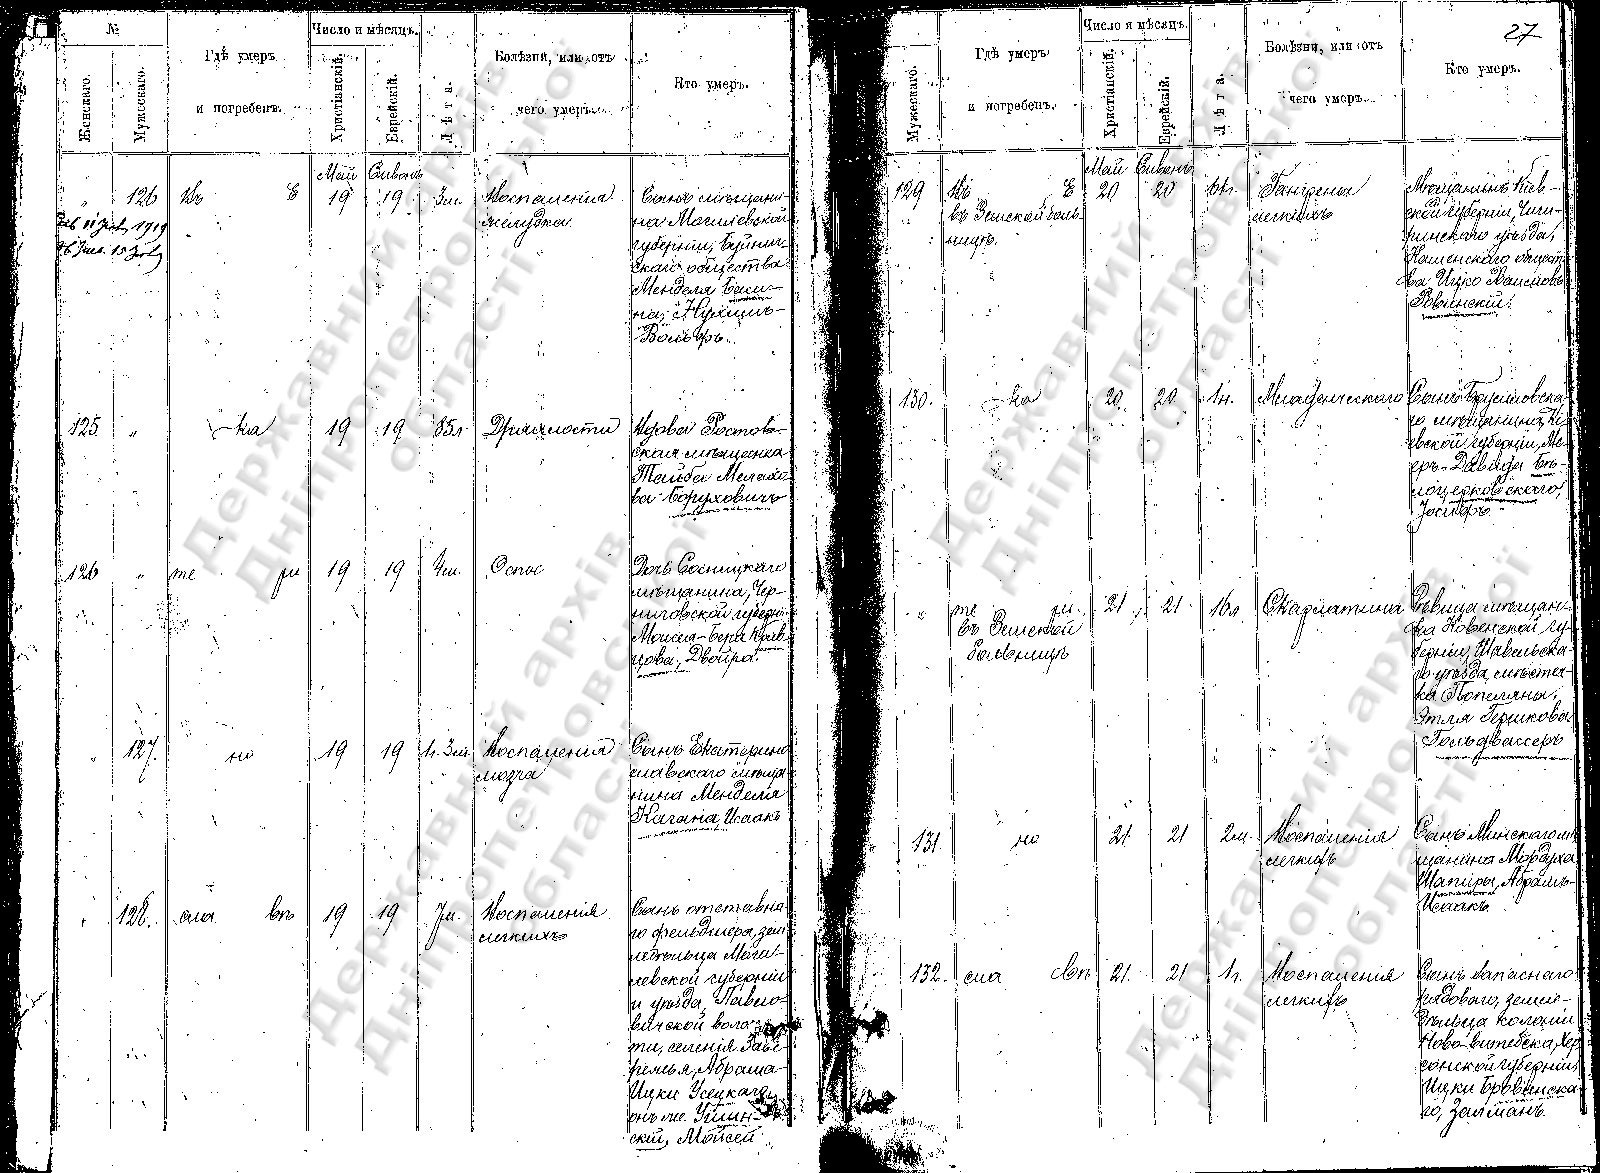 №
Женскаго.
Мужескаго.
Гдѣ умеръ
и погребенъ.
Число и мѣсяцъ.
Христіанскій.
Еврейскій.
Лѣта.
Болѣзни, или отъ
чего умеръ.
Кто умеръ.
Май Сиванъ
126 Въ Е 19 19 3м. Воспаленія
желудка
Сынъ мѣщани-
на Могилевской
губерніи,
скаго общества
Менделя
на,
Вольфъ.
125 „ -ка 19 19 85л Дряхлости
Вдова Ростов-
ская мѣщанка
Тайба
ва Боруховичъ
126 „ те ри 19 19 4м. Оспы
Дочь Сосницкаго
мѣщанина, Чер-
ниговской губерн.
Моисея-Бера Крив-
цова, Двойра.
„ 127. но 19 19 1г. 3м. Воспаленія
мозга
Сынъ Екатерино
славскаго мѣща
нина Менделя
Кагана, Исаакъ
„ 128. сла въ 19 19 7м. Воспаленія
легкихъ
Сынъ отставна-
го фельдшера, зем
ледѣльца Моги-
левской губерніи
и уѣзда, Павло-
вичской волос-
ти, селенія
Абрама-
Ицки Усецкаго
онъ же
скій, Мойсей
27
Мужескаго.
Гдѣ умеръ
и погребенъ.
Число и мѣсяцъ.
Христіанскій.
Еврейскій.
Лѣта.
Болѣзни, или отъ
чего умеръ.
Кто умеръ.
Май Сиванъ
129 Въ Е 20 20 64г. Гангрены
въ Земской боль-
ницѣ.
легкихъ
Мѣщанинъ Кіев-
ской губерніи, Чиги-
ринскаго уѣзда,
Каменскаго общест-
ва Ицко
Ровинскій.
130. -ка 20 20 1н. Младенческаго
Сынъ
го мѣщанина, Кі-
евской губерніи, Ме-
еръ-Давида Бѣ-
лоцерковскаго,
Іосифъ
„ те ри. 21 21 16л Скарлатина
въ Земской
больницѣ
Дѣвица мѣщан-
ка Ковенской гу-
берніи, Шавельска-
го уѣзда, мѣстеч-
ка Попеляны,
Этля Гершкова
Гольдвассеръ
131. но 21 21 2м. Воспаленія
легкихъ
Сынъ Минскаго мѣ
щанина Мордуха
Шапиры, Абрамъ-
Исаакъ
132. сла въ 21 21 1г. Воспаленія
легкихъ
Сынъ запаснаго
рядового, земле-
дѣльца колоніи
Ново-Витебска, Хер
сонской губерніи,
Ицки Бровинска-
го, Залманъ.
Державний архів
Дніпропетровської
області
Державний архів
Дніпропетровської
області